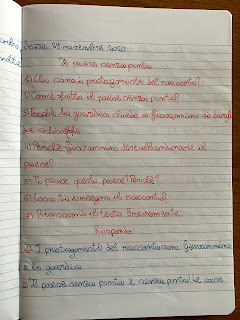 novembre 2020
Il paese senza punta
1) Chi sono i protagonisti del racconto?
2) Com'è fatto il paese senza punta?
3) Perché la guardia chiede a Giovannino di dargli
uno schiaffo
4) Perché Giovannino deve abbandonare il
paese?
5) Ti piace questo paese? Perché?
6) Cosa ti insegna il racconto?
7) Riassumi il testo brevemente
Rispondo
1) I protagonisti del racconto sono Giovannino
e la guardia
2) Il paese senza punta è senza punta! Le case